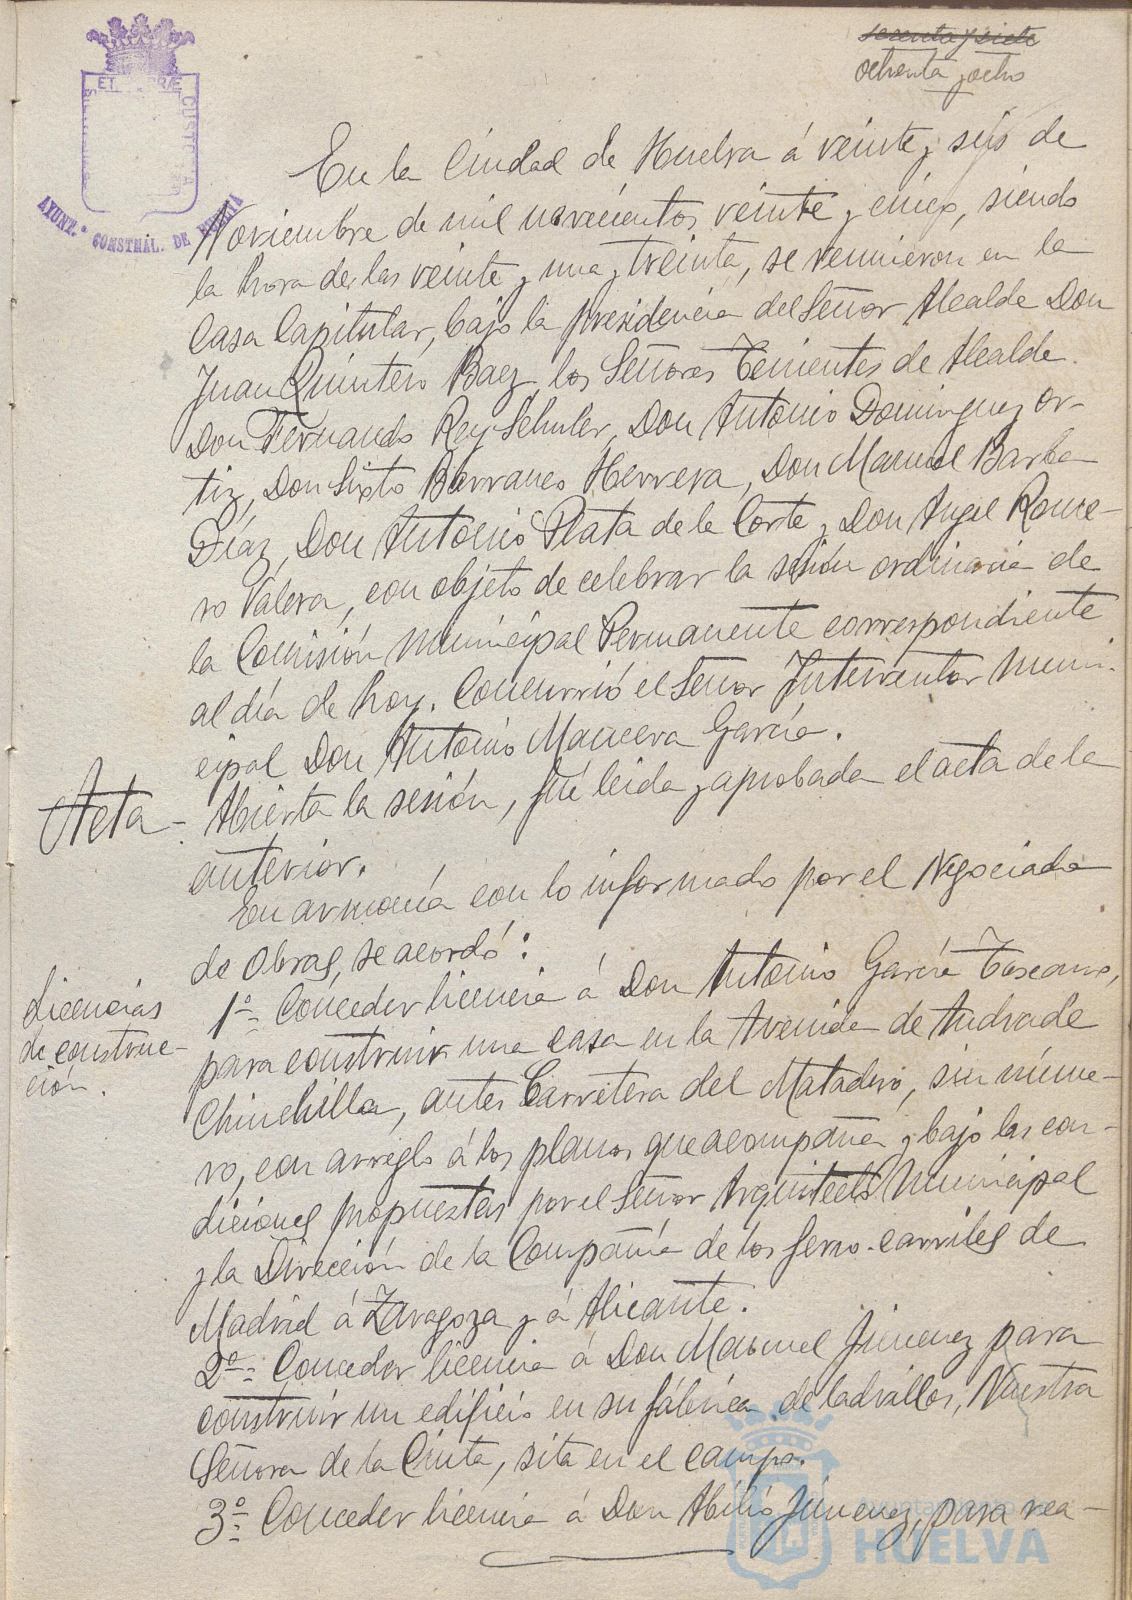 sesenta y siete
ochenta y ocho
ET TERRÆ CUSTODIA
AYUNT.º CONSTNAL. DE HUELVA
En la Ciudad de Huelva á veinte y seis de
Noviembre de mil novecientos veinte y cinco, siendo
la hora de las veinte y una y treinta, se reunieron en la
Casa Capitular, bajo la presidencia del Señor Alcalde Don
Juan Quintero Baez, los Señores Tenientes de Alcalde
Don Fernando Rey Schuler, Don Antonio Dominguez Or-
tiz, Don Sixto Barranco Herrera, Don Manuel Barba
Díaz, Don Antonio Plata de la Corte y Don Angel Rome-
ro Valera, con objeto de celebrar la sesión ordinaria de
la Comisión Municipal Permanente correspondiente
al día de hoy. Concurrió el Señor Interventor Muni-
cipal Don Antonio Mancera García.
Acta-
Abierta la sesión, fué leida y aprobada el acta de la
anterior.
En armonía con lo informado por el Negociado
de Obras, se acordó:
Licencias
de construc-
ción.
1º= Conceder licencia á Don Antonio García Toscano,
para construir una casa en la Avenida de Andrade
Chinchilla, antes Carretera del Matadero, sin núme-
ro, con arreglo á los planos que acompaña y bajo las con-
diciones propuestas por el Señor Arquitecto Municipal
y la Dirección de la Compañía de los ferro-carriles de
Madrid á Zaragoza y á Alicante.
2º= Conceder licencia á Don Manuel Jimenez para
construir un edificio en su fábrica de ladrillos, Nuestra
Señora de la Cinta, sita en el campo.
3º= Conceder licencia á Don Abilio Jimenez, para rea-
Ayuntamiento de
HUELVA